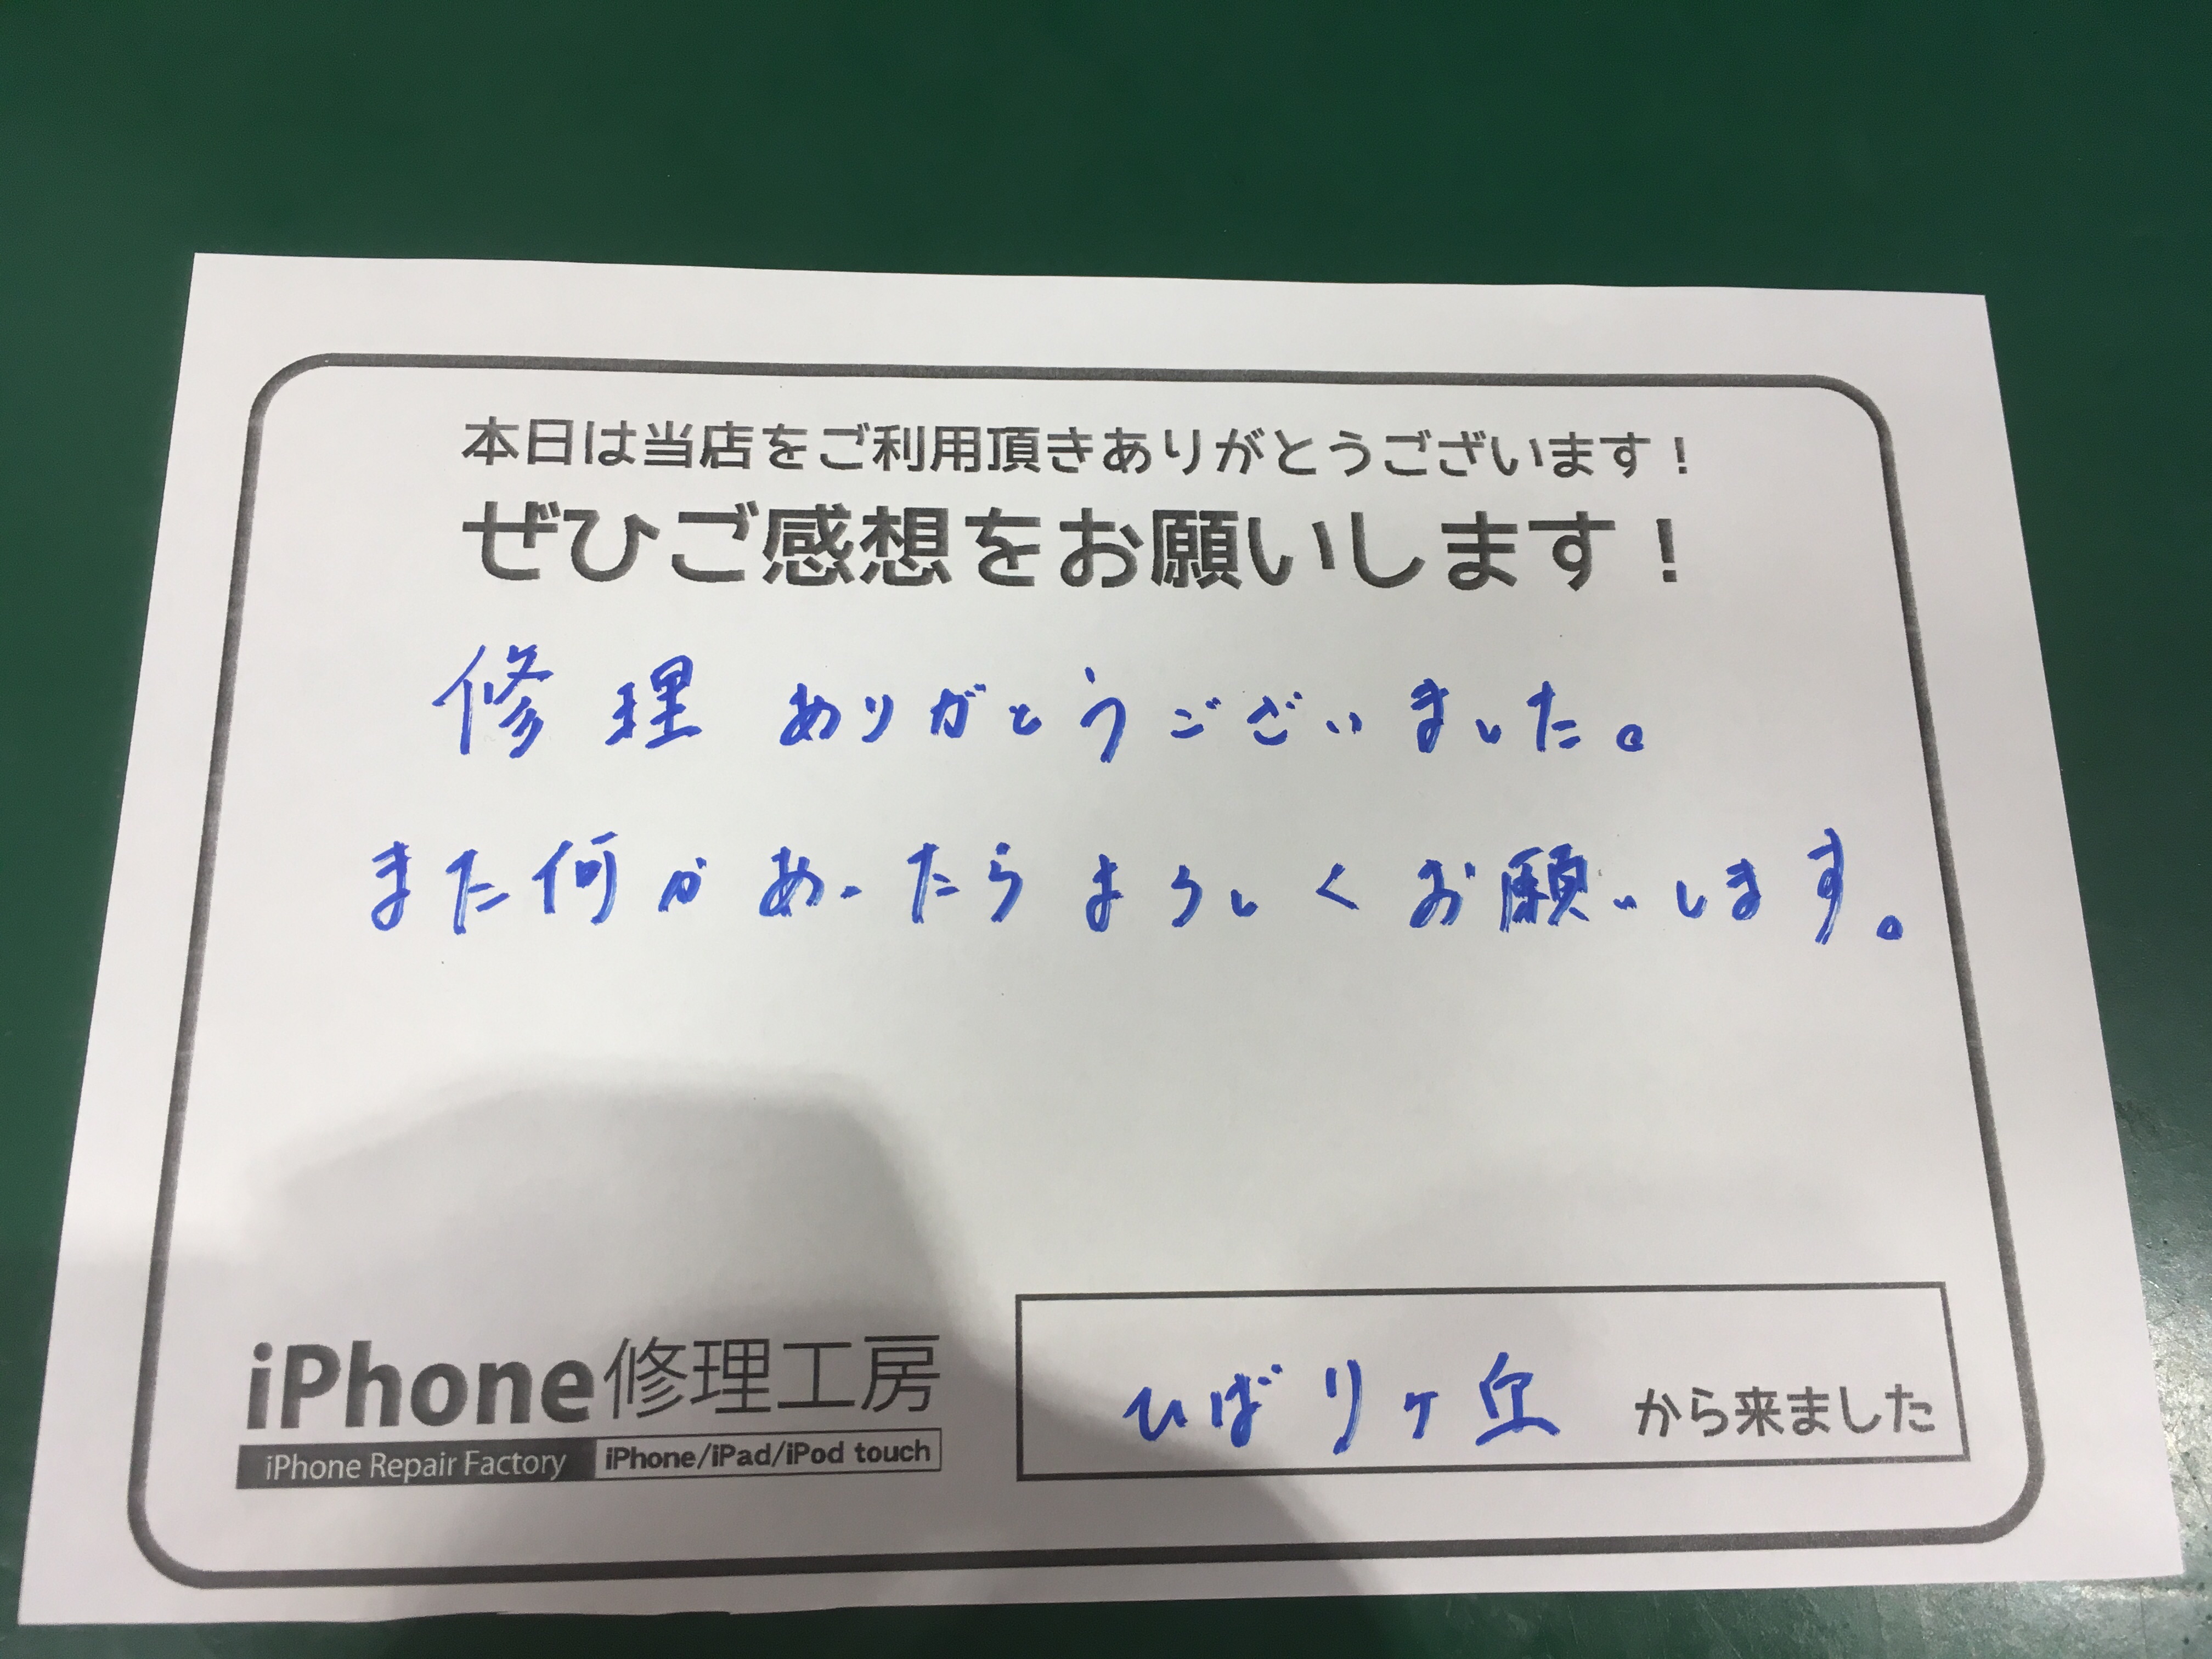 本日は当店をご利用頂きありがとうございます！
ぜひご感想をお願いします！
修理ありがとうございました。
また何かあったらよろしくお願いします。
ひばりヶ丘 から来ました
iPhone修理工房
iPhone Repair Factory iPhone/iPad/iPod touch